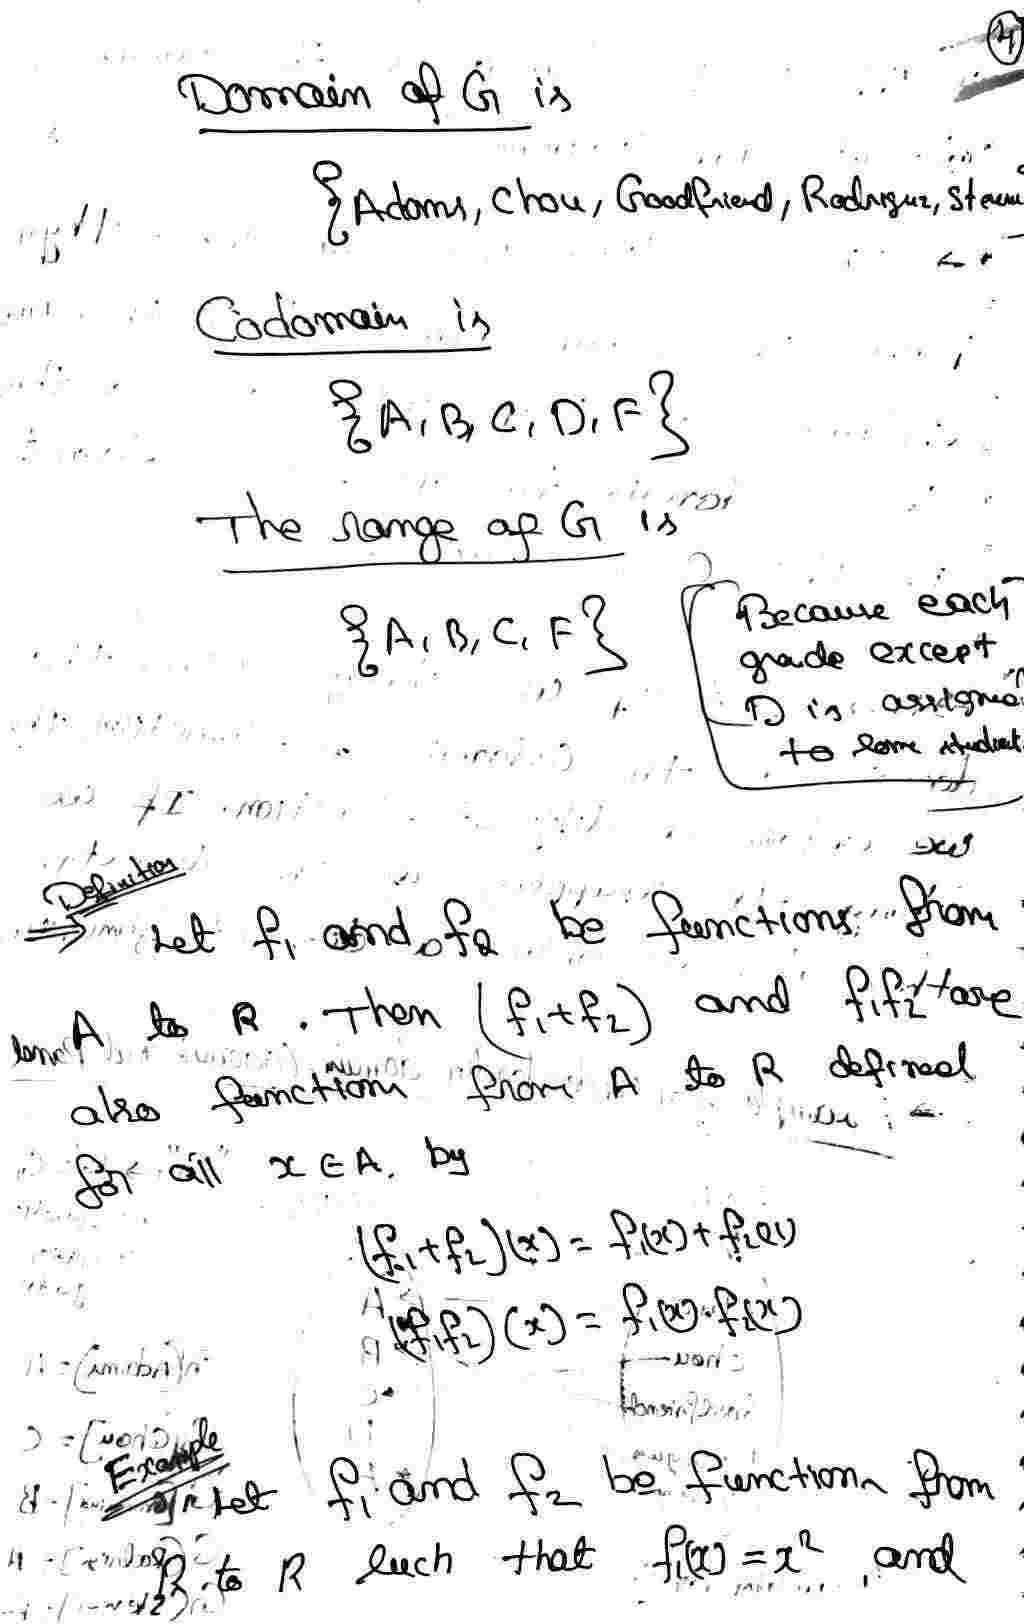 4
Domain of G is
{Adams, Chou, Goodfriend, Rodriguez, Steven
Codomain is
{A, B, C, D, F}
The range of G is
{A, B, C, F}
Because each
grade except
D is assigned
to some student
Definition
⇒ Let f₁ and f₂ be functions from
A to R. Then (f₁+f₂) and f₁f₂ are
also function from A to R defined
for all x ∈ A, by
(f₁+f₂)(x) = f₁(x) + f₂(x)
(f₁f₂)(x) = f₁(x)·f₂(x)
Example
Let f₁ and f₂ be function from
R to R such that f₁(x) = x² and